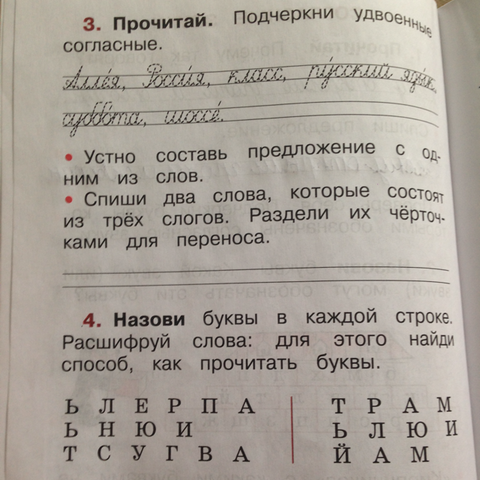 3. Прочитай. Подчеркни удвоенные
согласные.
Алле́я, Росси́я, класс, ру́сский язы́к,
суббо́та, шоссе́.
• Устно составь предложение с од-
ним из слов.
• Спиши два слова, которые состоят
из трёх слогов. Раздели их чёрточ-
ками для переноса.
4. Назови буквы в каждой строке.
Расшифруй слова: для этого найди
способ, как прочитать буквы.
Ь Л Е Р П А Т Р А М
Ь Н Ю И Ь Л Ю И
Т С У Г В А Й А М